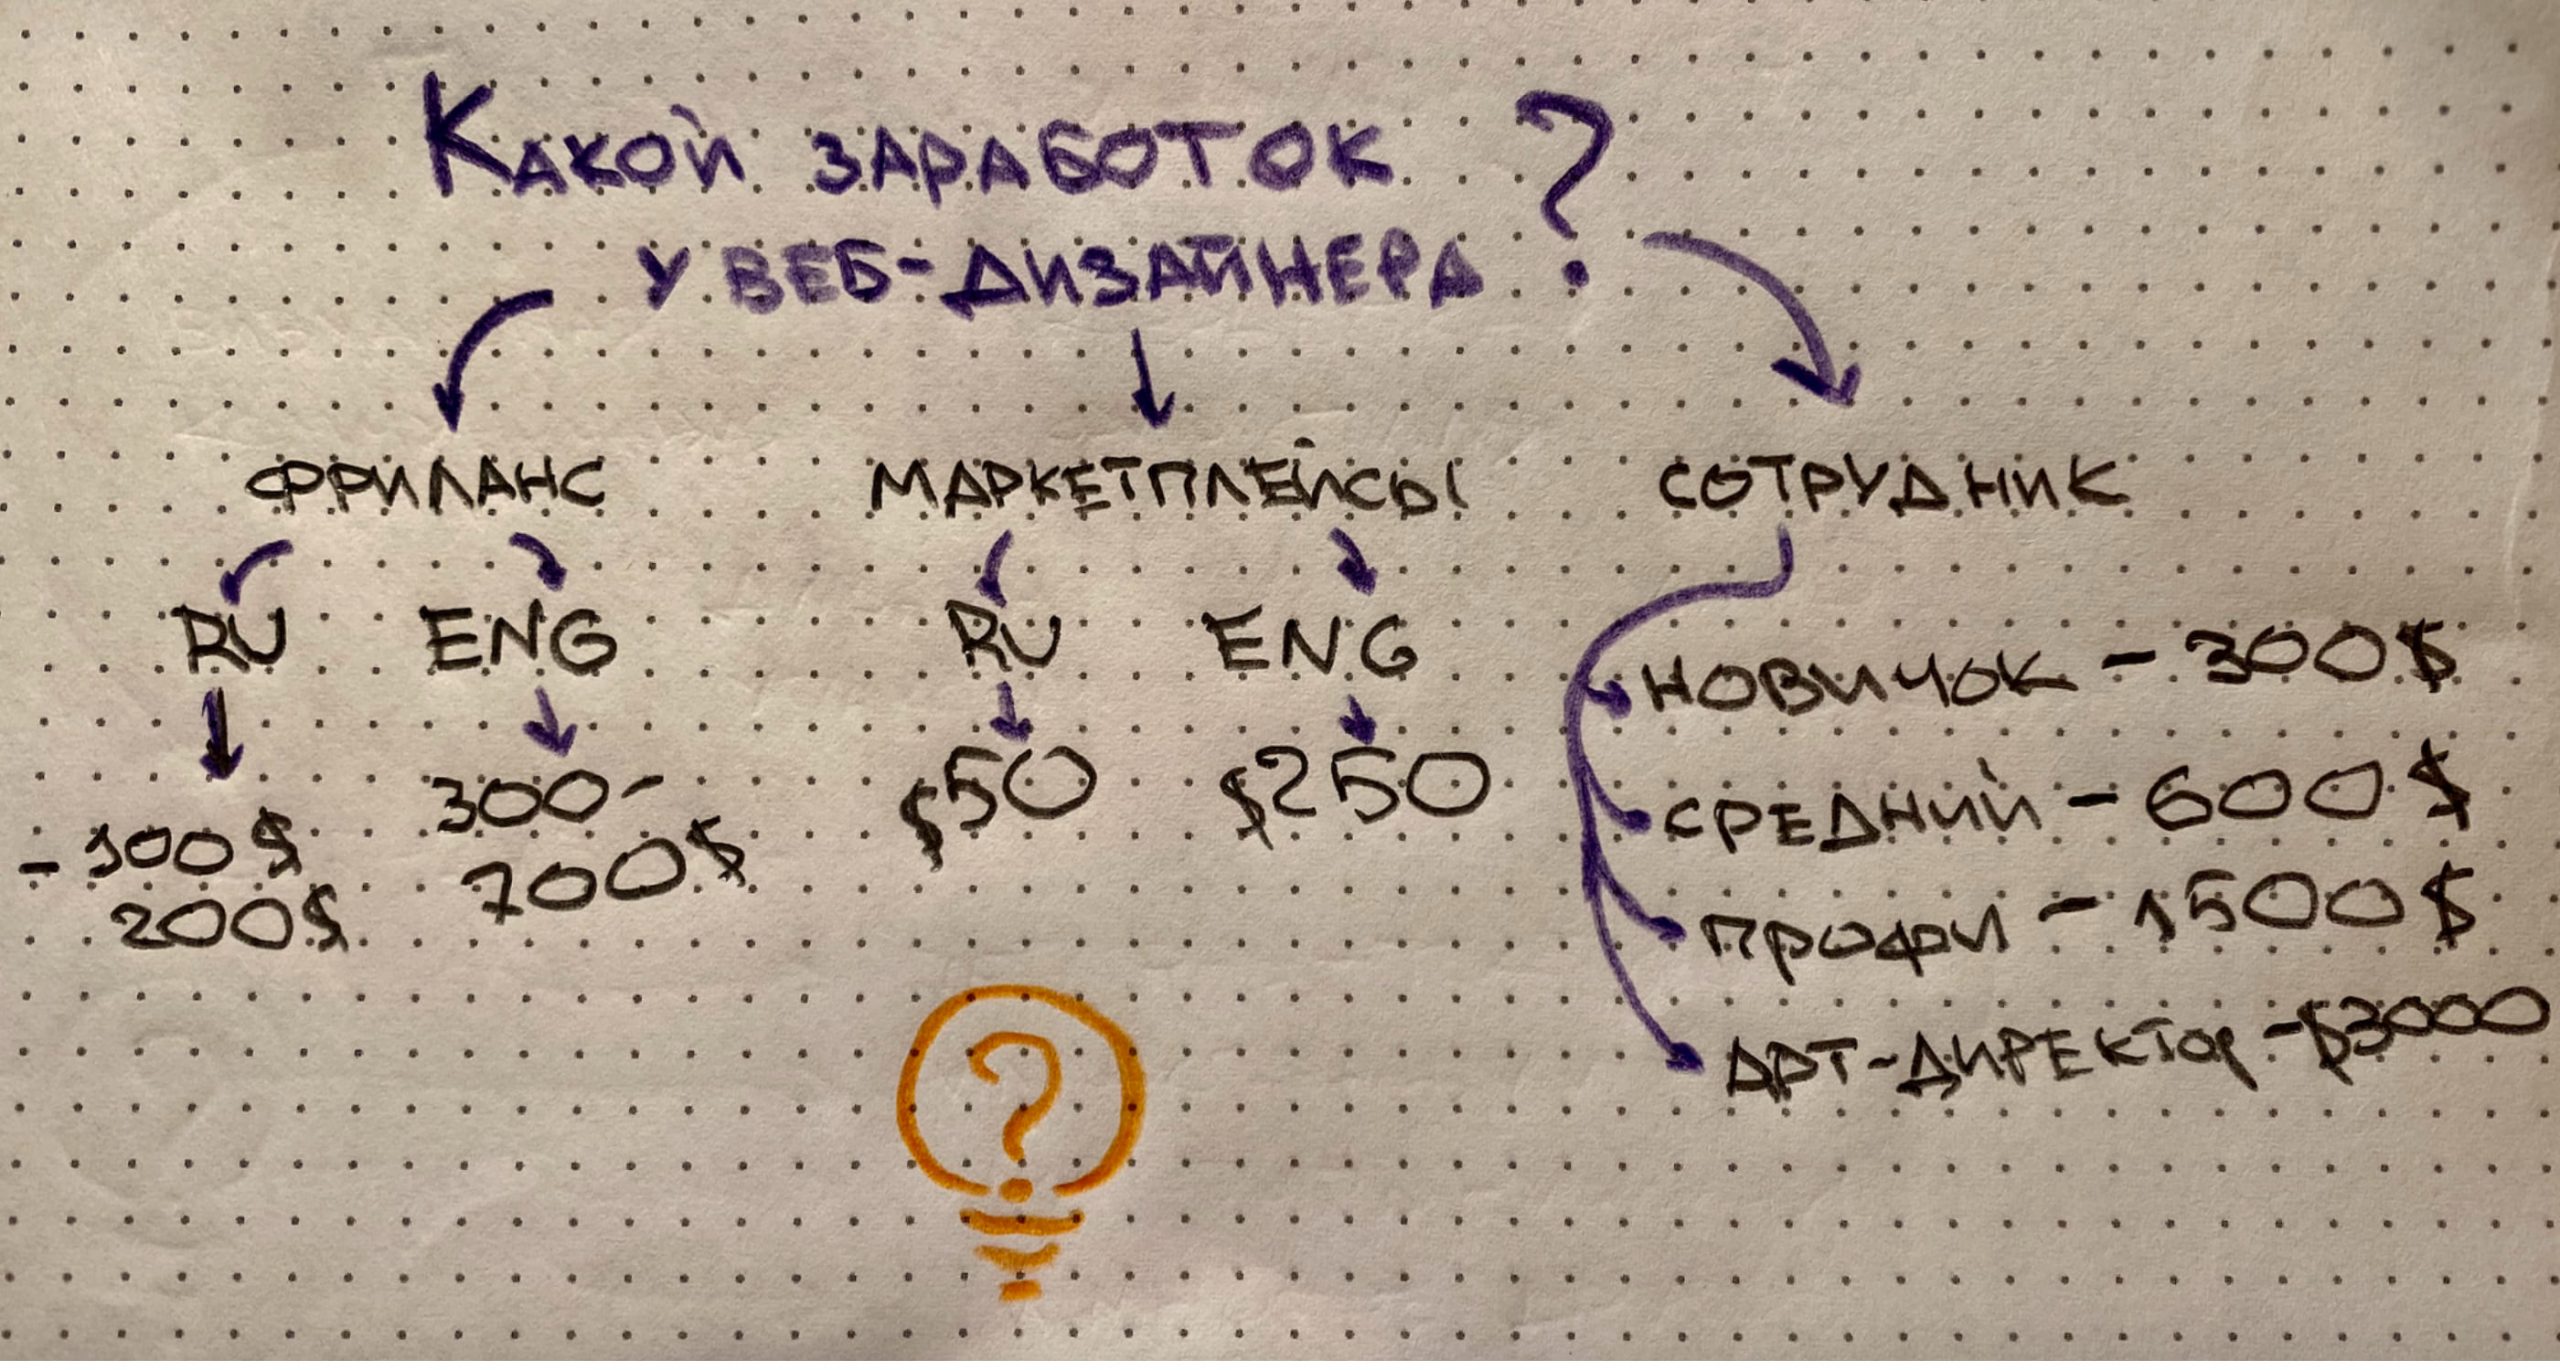 Какой заработок ?
у веб-дизайнера
фриланс маркетплейсы сотрудник
RU ENG RU ENG
- 100$
200$
300-
700$
$50 $250
новичок - 300$
средний - 600$
профи - 1500$
Арт-директор - $3000
?